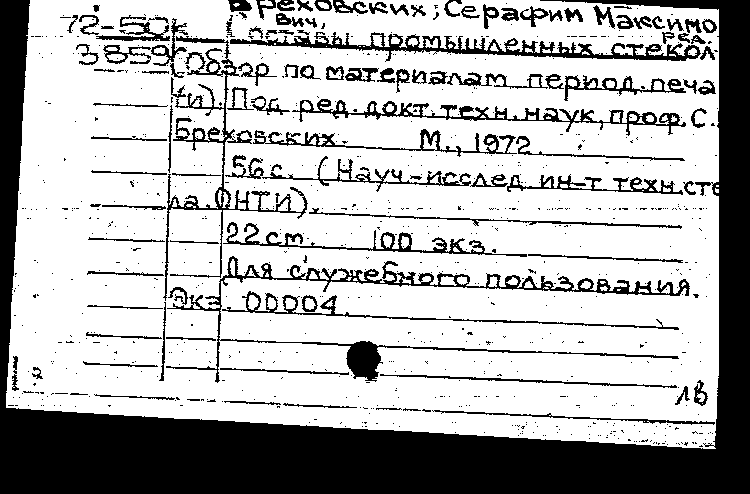 Бреховских, Серафим Максимо
72-50к
вич, ред.
Составы промышленных стекол
3859
(Обзор по материалам период. печа
ти). Под ред. докт. техн. наук, проф. С.
Бреховских. М., 1972.
56 с. (Науч.-исслед. ин-т техн. сте
ла. ОНТИ).
22 см. 100 экз.
Для служебного пользования.
Экз. 00004.
ЛВ